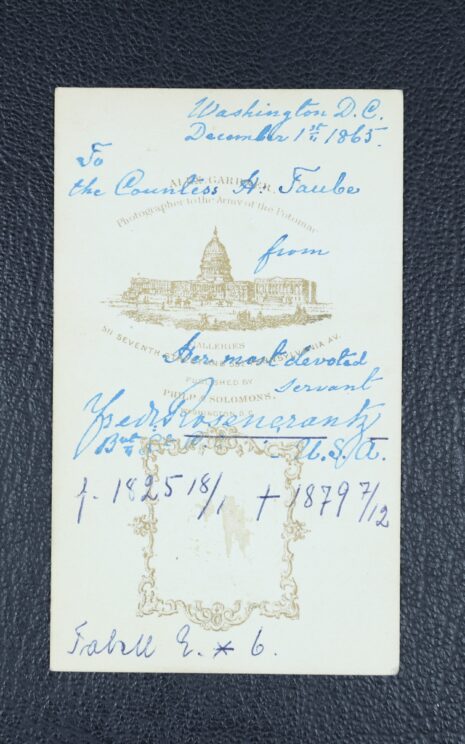 Washington D.C.
December 1st 1865.
To
ALEX. GARDNER,
the Countess A. Taube
Photographer to the Army of the Potomac
from
GALLERIES
511 SEVENTH PENNSYLVANIA AV.
Her most devoted
servant
PUBLISHED BY
PHILP & SOLOMONS,
WASHINGTON D.C.
Fredr Rosencrantz
Bvt Lt Col. U.S.A.
f. 1825 18/1 + 1879 7/12
Tabell E. * 6.